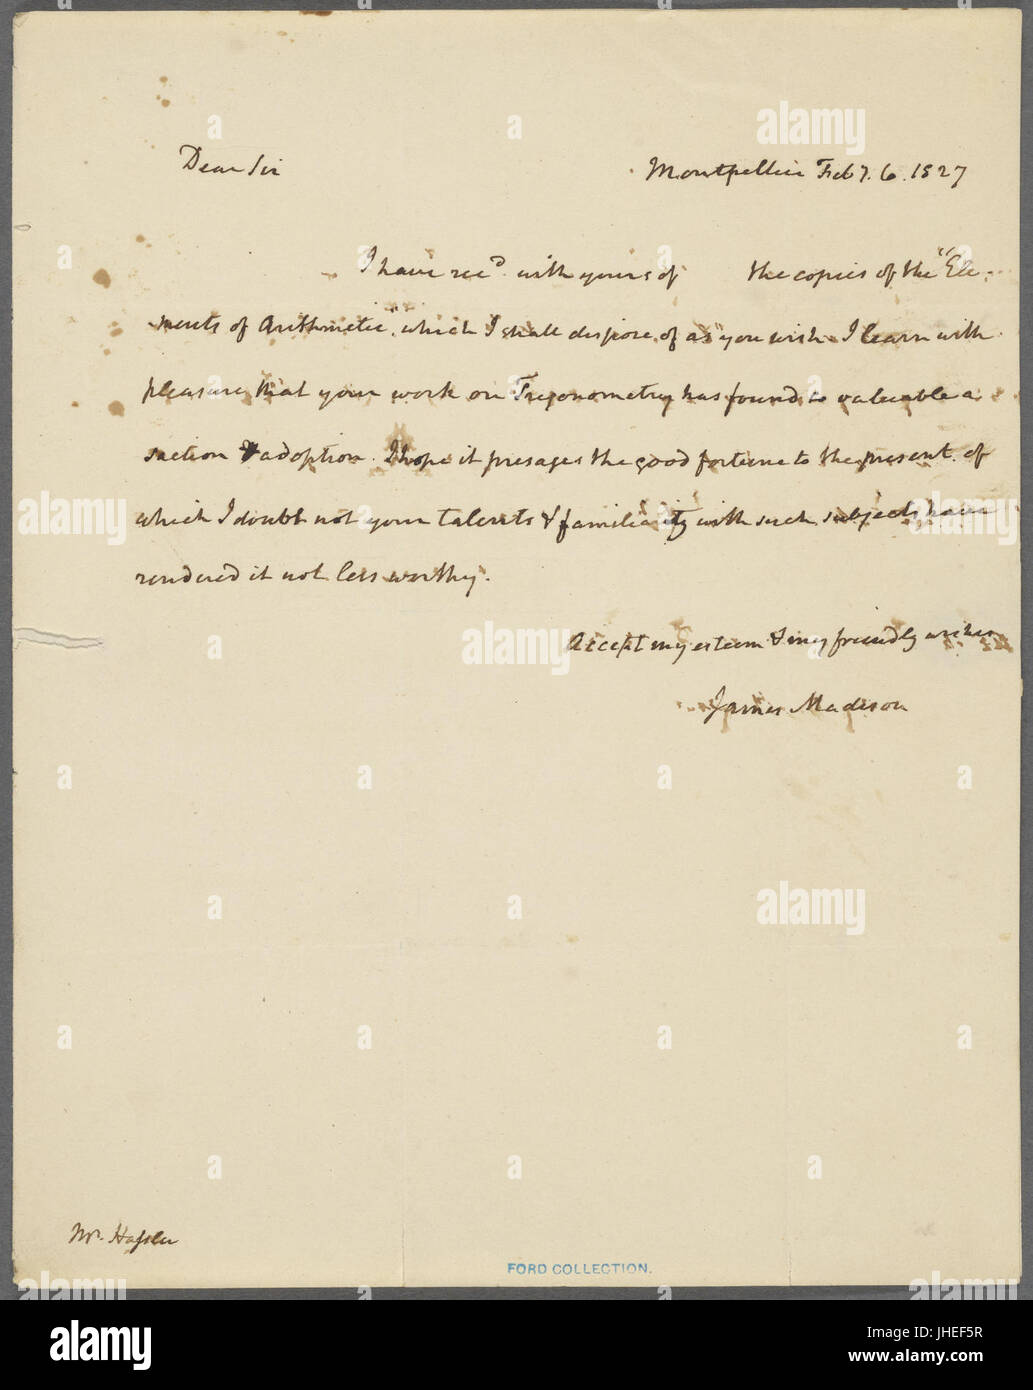 Dear Sir
Montpellier Feby. 6. 1827
I have recd. with yours of the copies of the "Ele-
ments of Arithmetic", which I shall dispose of as you wish. I learn with
pleasure that your work on Trigonometry has found so valuable a
sanction & adoption. I hope it presages the good fortune to the present of
which I doubt not your talents & familiarity with such subjects have
rendered it not less worthy.
Accept my esteem & my friendly wishes
James Madison
Mr. Hassler
FORD COLLECTION.
alamy
Image ID: JHEF5R
www.alamy.com